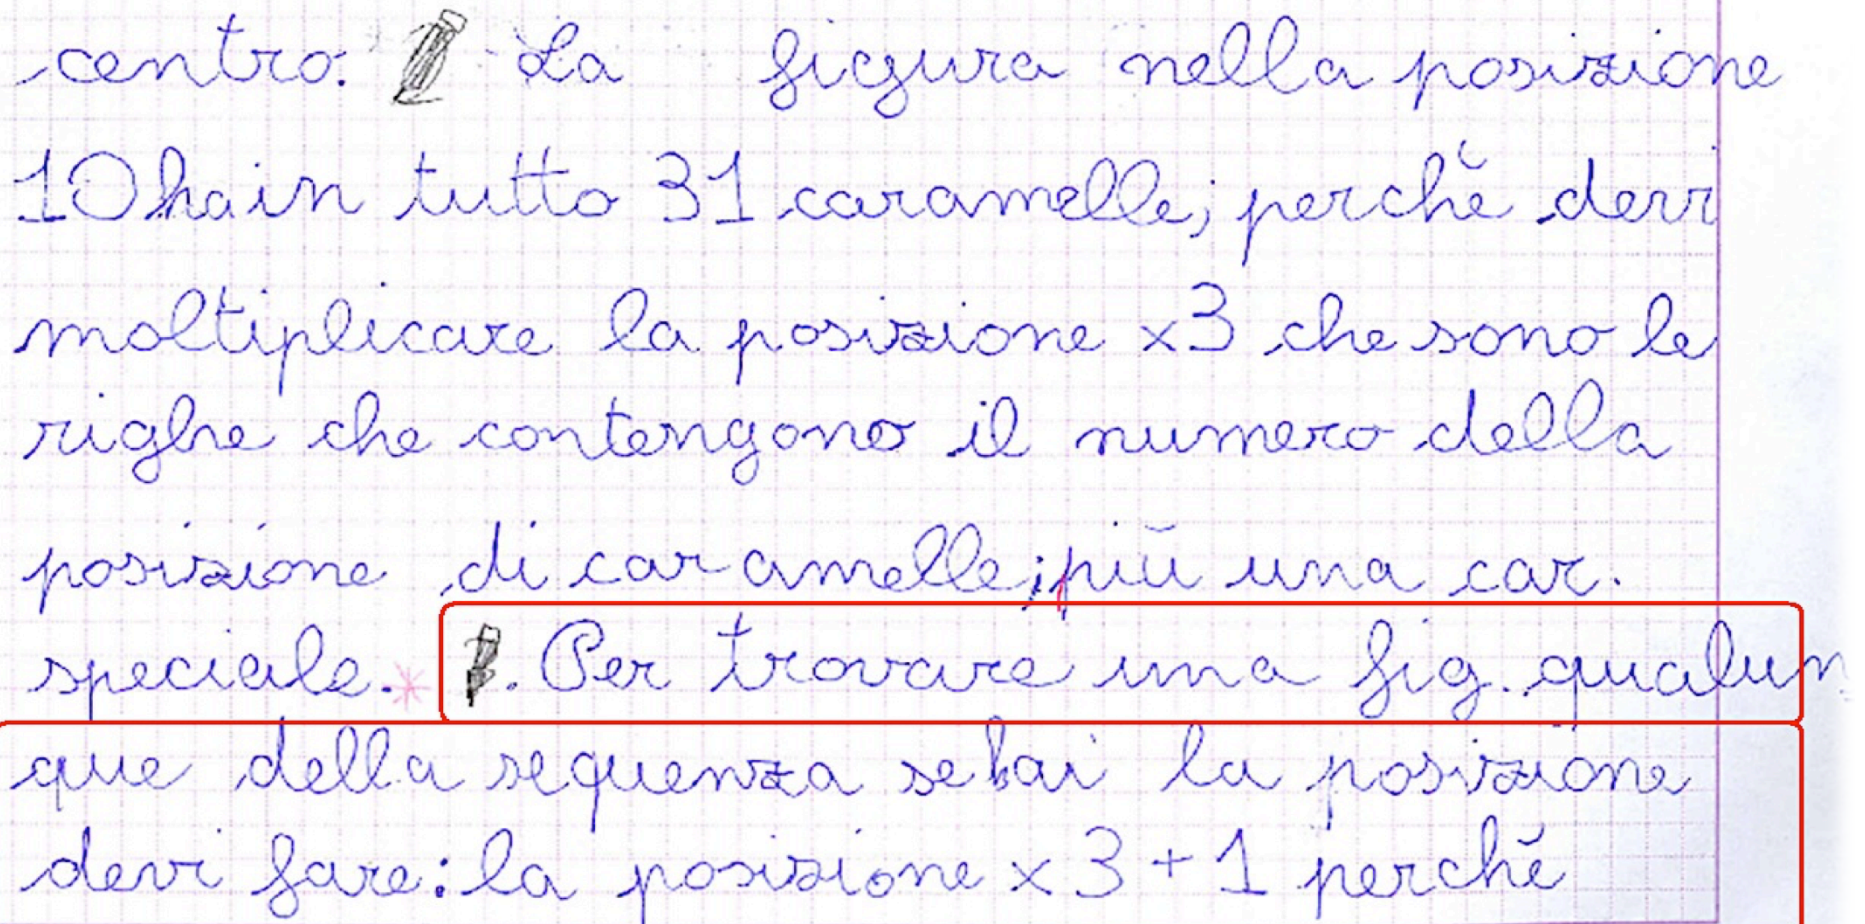 centro. La figura nella posizione
10 ha in tutto 31 caramelle; perchè devi
moltiplicare la posizione x3 che sono le
righe che contengono il numero della
posizione di caramelle; più una car.
speciale. * . Per trovare una fig. qualun
que della sequenza se hai la posizione
devi fare: la posizione x 3 + 1 perchè